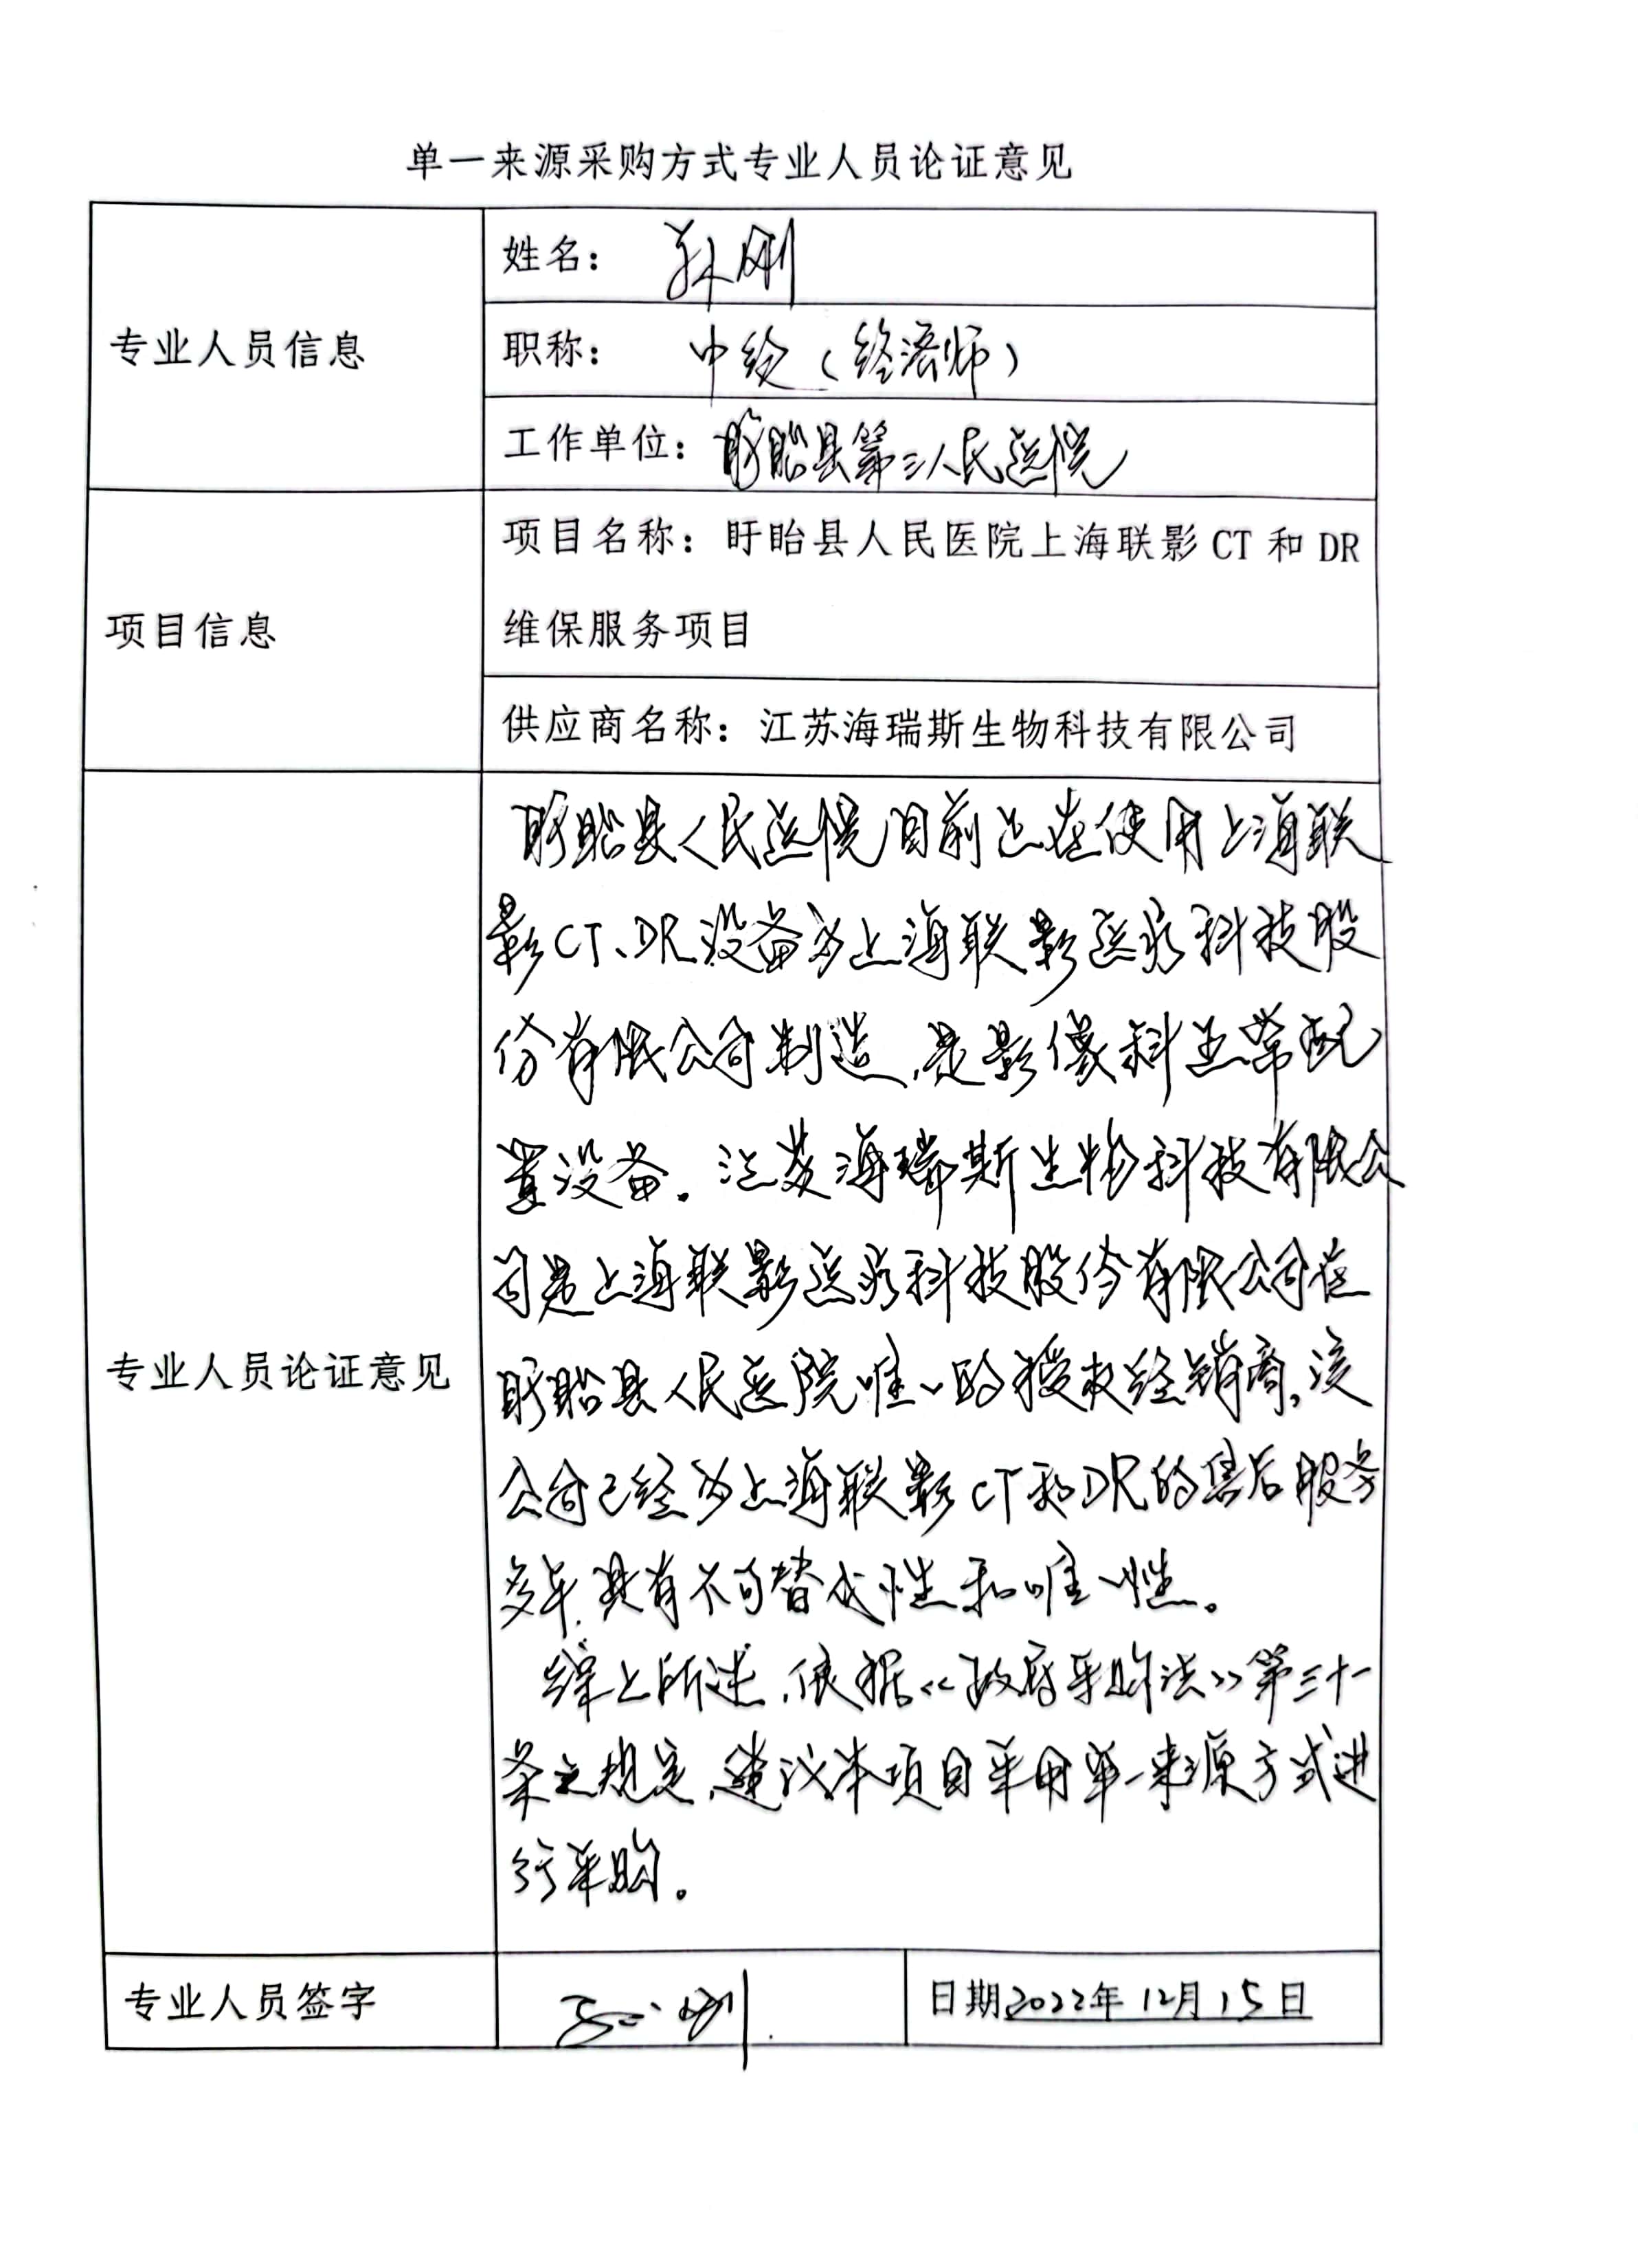 单一来源采购方式专业人员论证意见
专业人员信息
姓名： 孙刚
职称： 中级（经济师）
工作单位：盱眙县第三人民医院
项目信息
项目名称：盱眙县人民医院上海联影CT和DR
维保服务项目
供应商名称：江苏海瑞斯生物科技有限公司
专业人员论证意见
盱眙县人民医院目前正在使用上海联
影CT、DR设备为上海联影医疗科技股
份有限公司制造，是影像科正常配
置设备。江苏海瑞斯生物科技有限公
司是上海联影医疗科技股份有限公司在
盱眙县人民医院唯一的授权经销商，该
公司已经为上海联影CT和DR的售后服务
多年，具有不可替代性和唯一性。
综上所述，依据《政府采购法》第三十一
条之规定，建议本项目采用单一来源方式进
行采购。
专业人员签字
孙刚
日期2022年12月15日